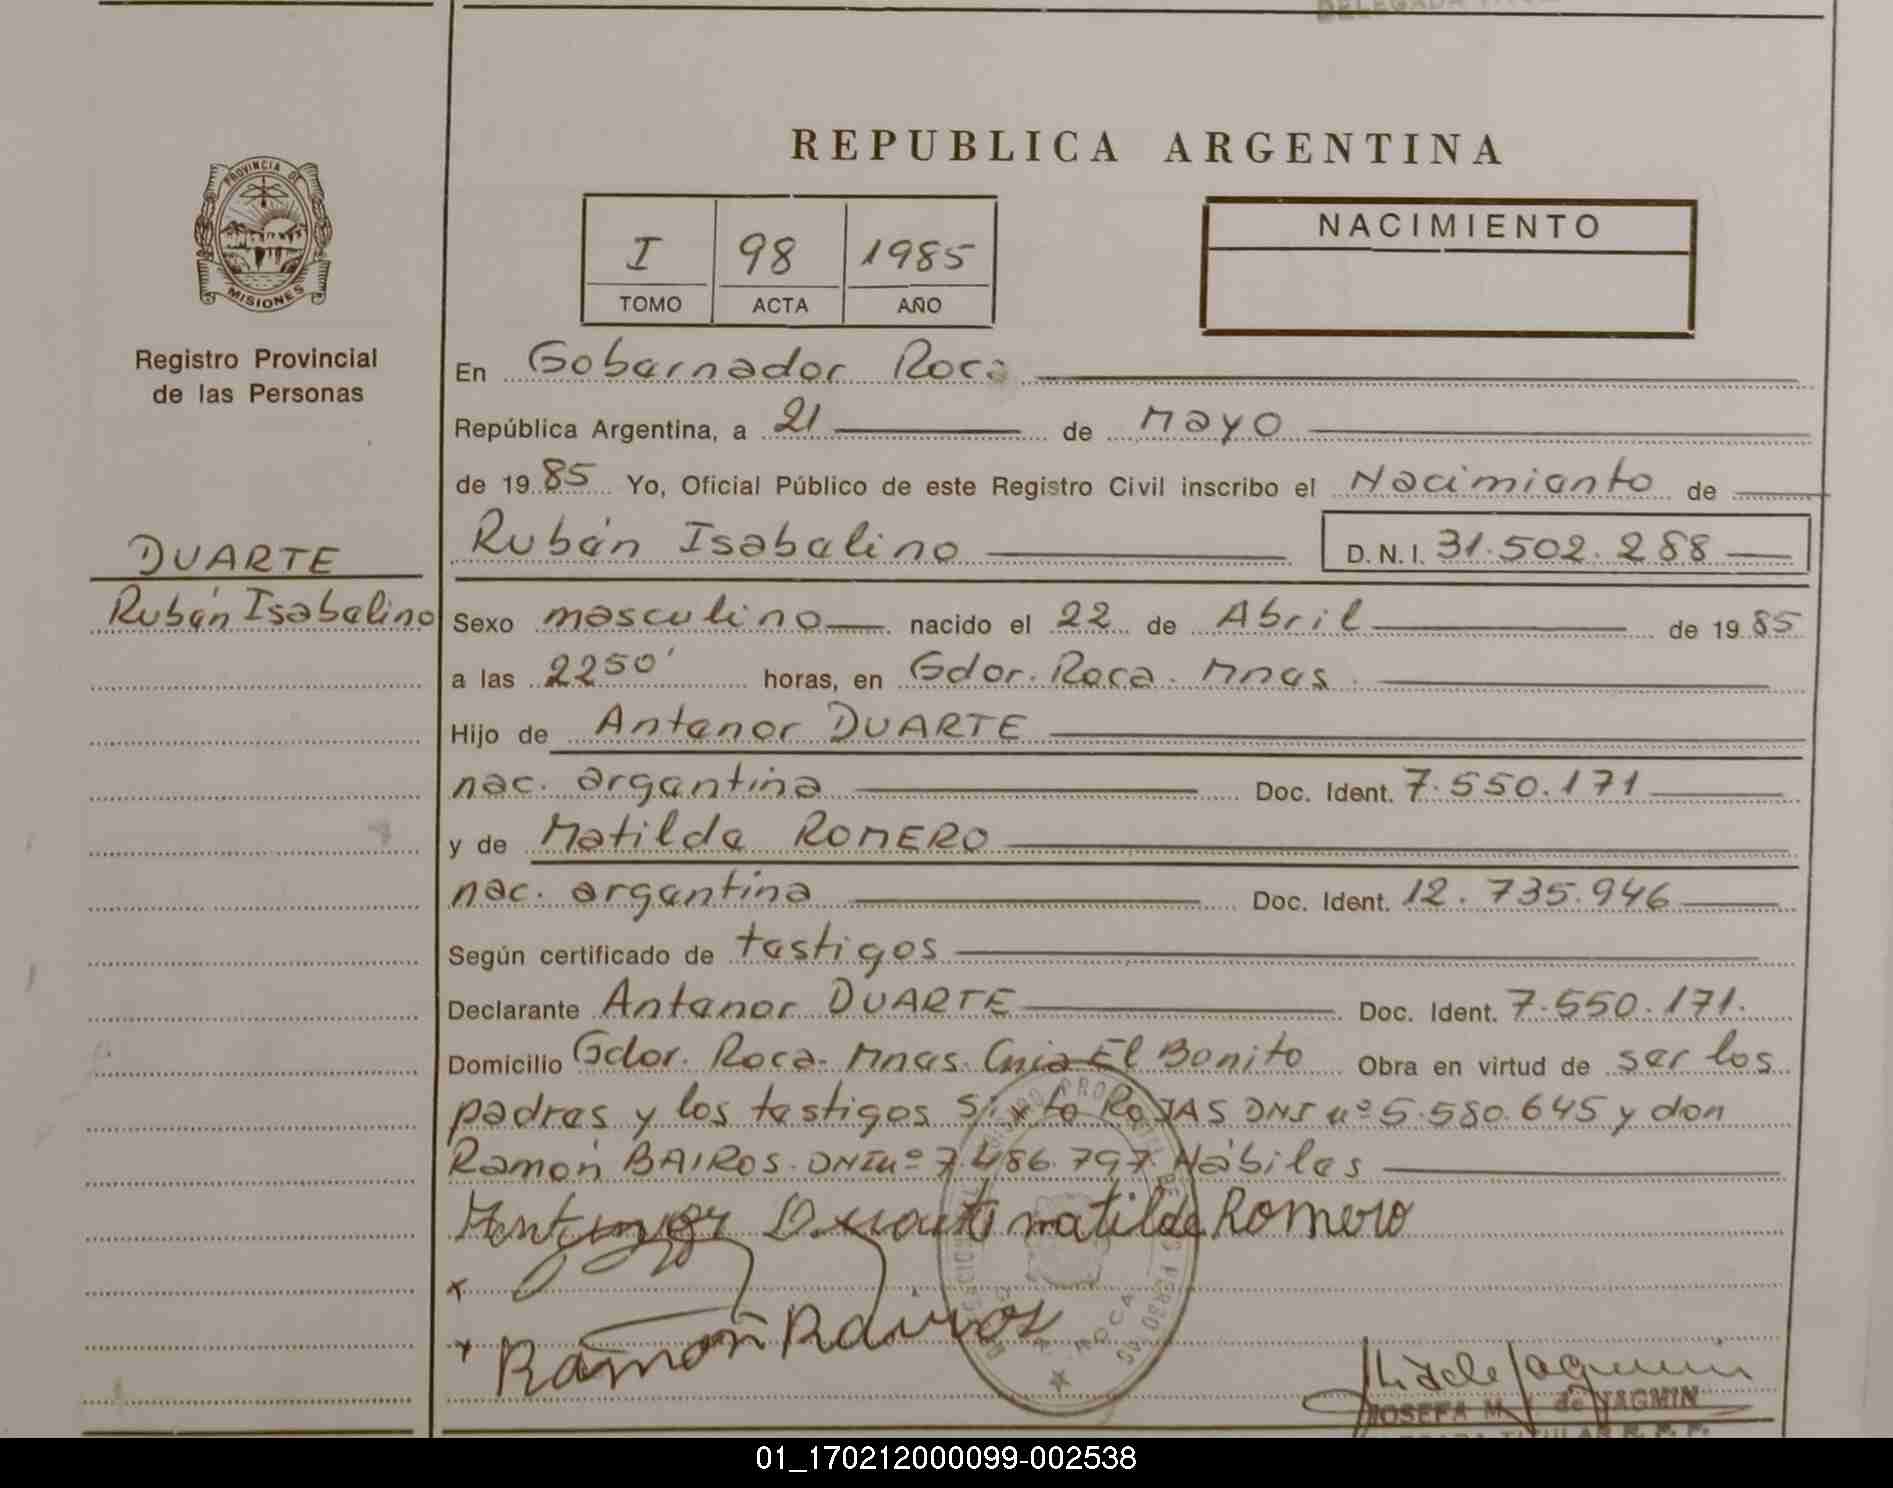 REPUBLICA ARGENTINA
PROVINCIA DE
MISIONES
Registro Provincial
de las Personas
I 98 1985
TOMO ACTA AÑO
NACIMIENTO
En Gobernador Roca
República Argentina, a 21 de Mayo
de 1985 Yo, Oficial Público de este Registro Civil inscribo el Nacimiento de
DUARTE
Rubén Isabelino
Rubén Isabelino D.N.I. 31.502.288
Sexo masculino nacido el 22 de Abril de 1985
a las 2250' horas, en Gdor. Roca. Mnes
Hijo de Antenor DUARTE
nac. argentina Doc. Ident. 7.550.171
y de Matilde ROMERO
nac. argentina Doc. Ident. 12.735.946
Según certificado de testigos
Declarante Antenor DUARTE Doc. Ident. 7.550.171.
Domicilio Gdor. Roca. Mnes. Cnia El Bonito Obra en virtud de ser los
padres y los testigos Sixto ROJAS DNI nº 5.580.645 y don
Ramón BAIROS. DNI nº 7.486.797. Hábiles
Duarte matilde Romero
x
x Ramón Bairos
ROCA
JOSEFA M. de YAGMIN
01_170212000099-002538